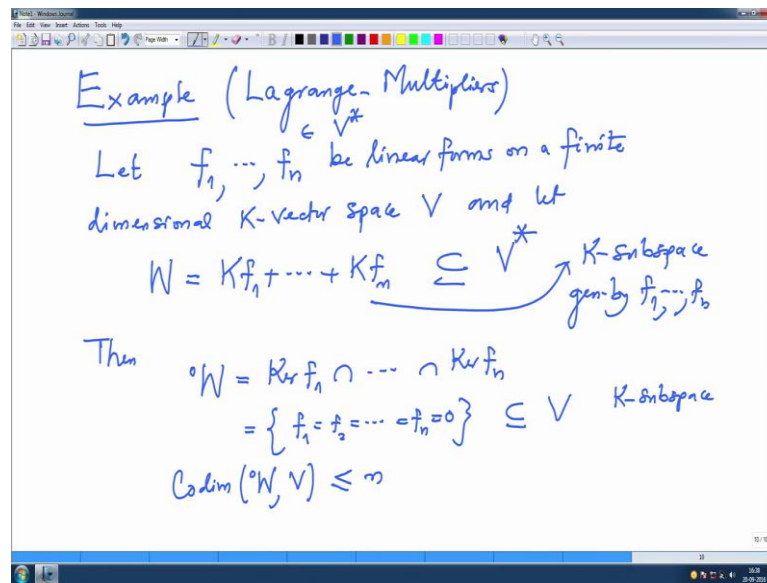 Note1 - Windows Journal
File Edit View Insert Actions Tools Help
Page Width
B I
Example (Lagrange- Multipliers)
∈ V*
Let f₁, ⋯, fₙ be linear forms on a finite
dimensional K-vector space V and let
W = Kf₁ + ⋯ + Kfₙ ⊆ V* K-subspace
gen. by f₁, ⋯, fₙ
Then °W = Ker f₁ ∩ ⋯ ∩ Ker fₙ
= { f₁ = f₂ = ⋯ = fₙ = 0 } ⊆ V K-subspace
Codim (°W, V) ≤ n
10
16:38